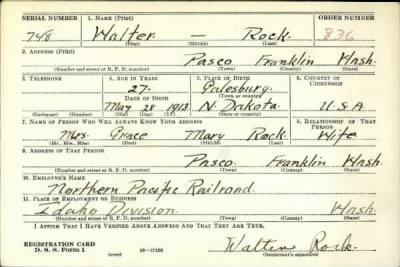 SERIAL NUMBER 1. NAME (Print) ORDER NUMBER
748 Walter — Rock 836
(First) (Middle) (Last)
2. ADDRESS (Print)
Pasco Franklin Wash.
(Number and street or R. F. D. number) (Town) (County) (State)
3. TELEPHONE 4. AGE IN YEARS 5. PLACE OF BIRTH 6. COUNTRY OF CITIZENSHIP
27. Galesburg.
DATE OF BIRTH (Town or county)
May 28 1913 N. Dakota. U.S.A
(Mo.) (Day) (Yr.) (State or country)
7. NAME OF PERSON WHO WILL ALWAYS KNOW YOUR ADDRESS 8. RELATIONSHIP OF THAT PERSON
Mrs. Grace Mary Rock. Wife
(Mr., Mrs., Miss) (First) (Middle) (Last)
9. ADDRESS OF THAT PERSON
Pasco. Franklin Wash.
(Number and street or R. F. D. number) (Town) (County) (State)
10. EMPLOYER'S NAME
Northern Pacific Railroad.
11. PLACE OF EMPLOYMENT OR BUSINESS
Idaho Division. Wash.
(Number and street or R. F. D. number) (Town) (County) (State)
I AFFIRM THAT I HAVE VERIFIED ABOVE ANSWERS AND THAT THEY ARE TRUE.
REGISTRATION CARD
D. S. S. Form 1 (over) 16—17105 Walter Rock.
(Registrant's signature)